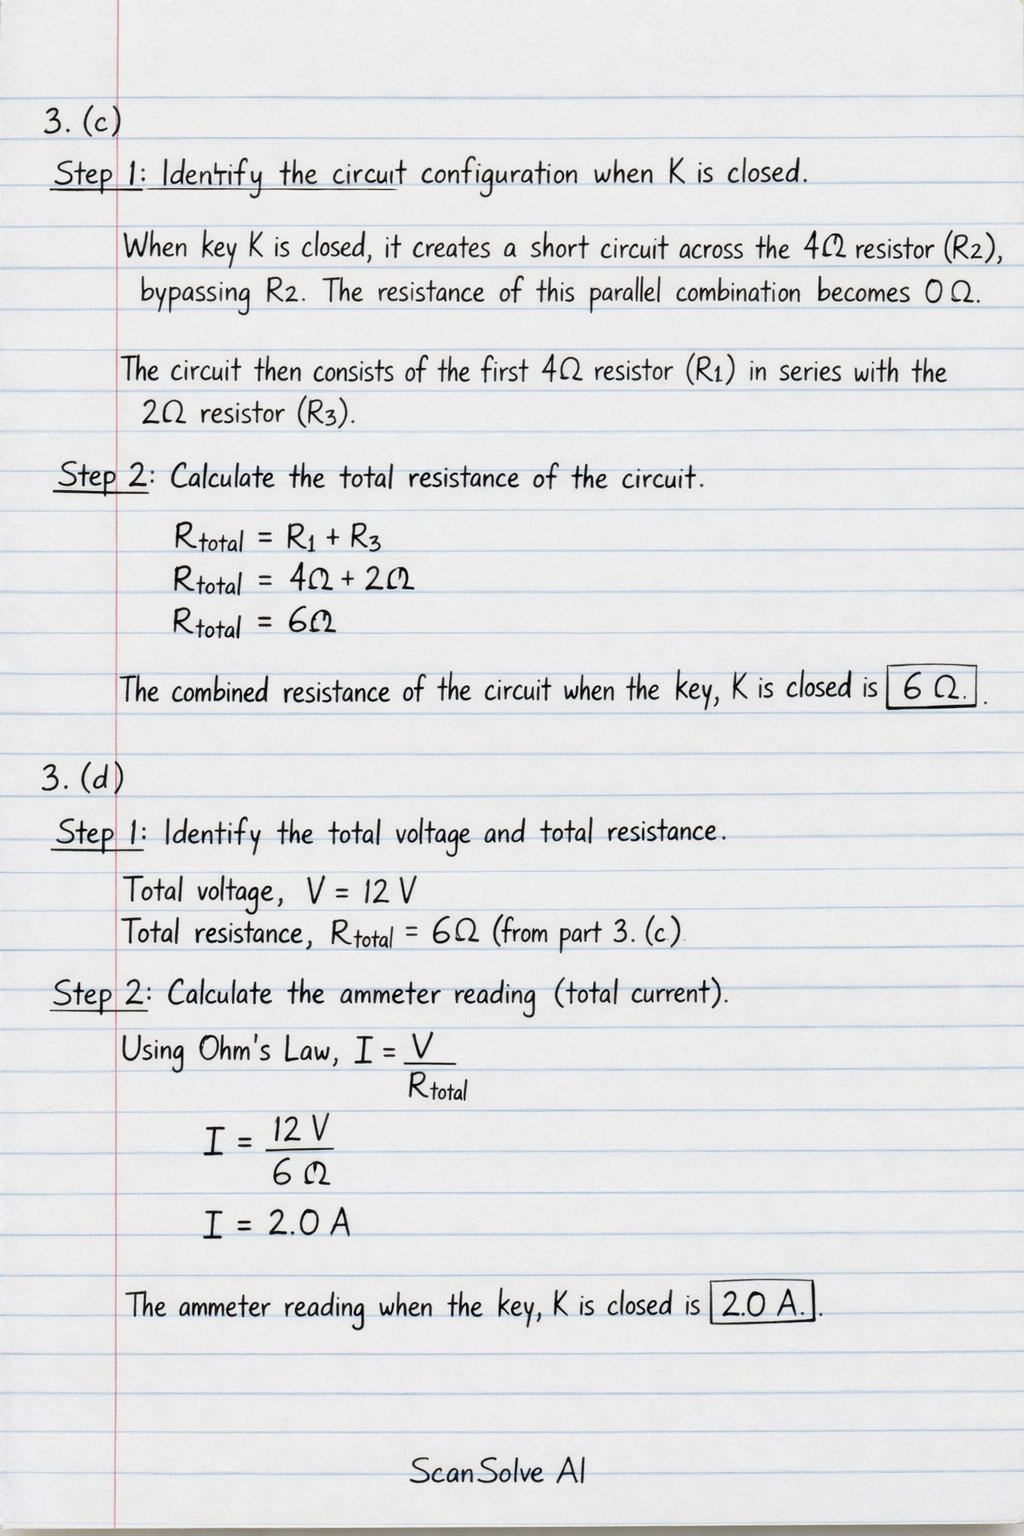 3. (c)
Step 1: Identify the circuit configuration when K is closed.
When key K is closed, it creates a short circuit across the 4Ω resistor (R2),
bypassing R2. The resistance of this parallel combination becomes 0 Ω.
The circuit then consists of the first 4Ω resistor (R1) in series with the
2Ω resistor (R3).
Step 2: Calculate the total resistance of the circuit.
Rtotal = R1 + R3
Rtotal = 4Ω + 2Ω
Rtotal = 6Ω
The combined resistance of the circuit when the key, K is closed is 6 Ω..
3. (d)
Step 1: Identify the total voltage and total resistance.
Total voltage, V = 12 V
Total resistance, Rtotal = 6Ω (from part 3. (c)
Step 2: Calculate the ammeter reading (total current).
Using Ohm's Law, I = V
Rtotal
I = 12 V
6 Ω
I = 2.0 A
The ammeter reading when the key, K is closed is 2.0 A..
ScanSolve AI